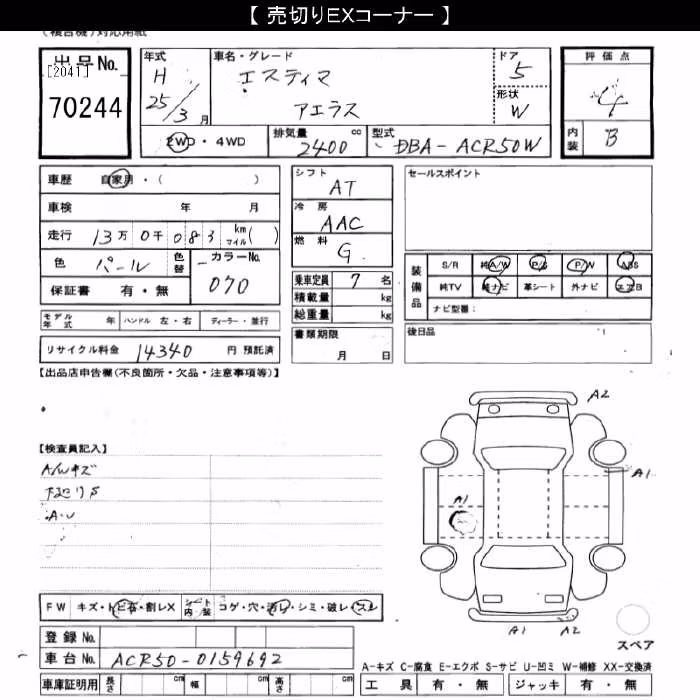 【 売切りEXコーナー 】
出品No.
[2041]
70244
年式
H
25/3月
車名・グレード
エスティマ
アエラス
ドア
5
形状
W
評価点
4
内装
B
2WD・4WD
排気量
2400 cc
型式
DBA-ACR50W
車歴 自家用・( )
車検 年 月
走行 13万0千083 km マイル( )
色 パール 色替
カラーNo.
070
保証書 有・無
シフト
AT
冷房
AAC
燃料
G
乗車定員 7 名
積載量 kg
総重量 kg
書類期限
月 日
セールスポイント
装備品
S/R 純A/W P/S P/W ABS
純TV 純ナビ 革シート 外ナビ エアB
ナビ型番:
後日品
モデル年式 年 ハンドル 左・右 ディーラー・並行
リサイクル料金 14340 円 預託済
【出品店申告欄(不良箇所・欠品・注意事項等)】
【検査員記入】
A/Wキズ
A2
A1
A1
A1
A2
スペア
FW キズ・トビ石・割レX シート内装 コゲ・穴・汚レ・シミ・破レ・スレ
登録No.
車台No. ACR50-0159692
車庫証明用 長さ cm 幅 cm 高さ cm
A-キズ C-腐食 E-エクボ S-サビ U-凹ミ W-補修 XX-交換済
工具 有・無 ジャッキ 有・無